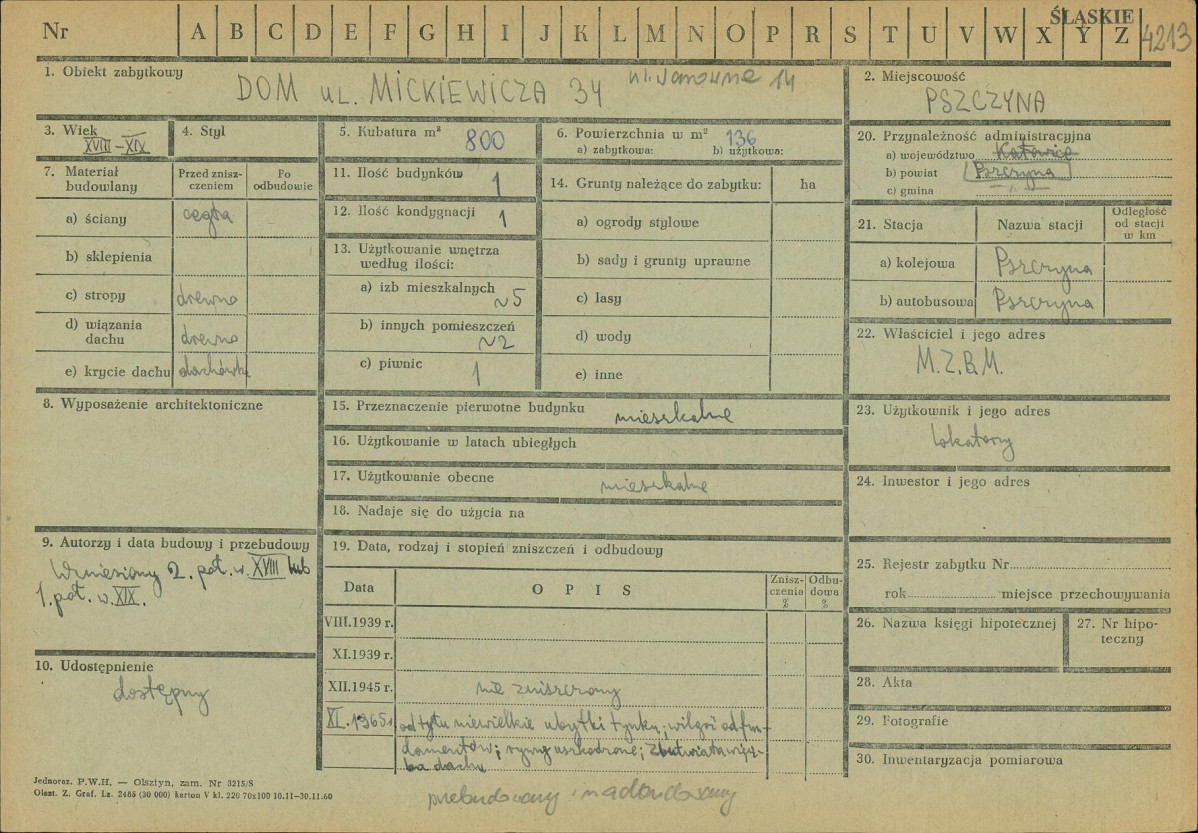 Nr A B C D E F G H I J K L M N O P R S T U V W X Y Z
ŚLĄSKIE
4213
1. Obiekt zabytkowy
DOM UL. MICKIEWICZA 34
ul. 14
2. Miejscowość
PSZCZYNA
3. Wiek
XVIII – XIX
4. Styl
5. Kubatura m³ 800
6. Powierzchnia w m² 136
a) zabytkowa: b) użytkowa:
7. Materiał budowlany
Przed zniszczeniem
Po odbudowie
a) ściany cegła
b) sklepienia
c) stropy drewno
d) wiązania dachu drewno
e) krycie dachu dachówka
8. Wyposażenie architektoniczne
9. Autorzy i data budowy i przebudowy
Wzniesiony 2. poł. w. XVIII lub
1. poł. w. XIX.
10. Udostępnienie
dostępny
11. Ilość budynków 1
12. Ilość kondygnacji 1
13. Użytkowanie wnętrza
według ilości:
a) izb mieszkalnych ~5
b) innych pomieszczeń ~2
c) piwnic 1
14. Grunty należące do zabytku: ha
a) ogrody stylowe
b) sady i grunty uprawne
c) lasy
d) wody
e) inne
15. Przeznaczenie pierwotne budynku mieszkalne
16. Użytkowanie w latach ubiegłych
17. Użytkowanie obecne mieszkalne
18. Nadaje się do użycia na
19. Data, rodzaj i stopień zniszczeń i odbudowy
Data OPIS Zniszczenia % Odbudowa %
VIII.1939 r.
XI.1939 r.
XII.1945 r. nie zniszczony
od tyłu niewielkie ubytki tynku; wilgoć od fun-
damentów; rynny uszkodzone; zbutwiała więź-
ba dachu
przebudowany i nadbudowany
20. Przynależność administracyjna
a) województwo Katowice
b) powiat Pszczyna
c) gmina
21. Stacja Nazwa stacji Odległość od stacji w km
a) kolejowa Pszczyna
b) autobusowa Pszczyna
22. Właściciel i jego adres
M.Z.B.M.
23. Użytkownik i jego adres
lokatorzy
24. Inwestor i jego adres
25. Rejestr zabytku Nr
rok miejsce przechowywania
26. Nazwa księgi hipotecznej
27. Nr hipoteczny
28. Akta
29. Fotografie
30. Inwentaryzacja pomiarowa
Jednoraz. P.W.H. — Olsztyn, zam. Nr 3215/S
Olszt. Z. Graf. Lz. 2485 (30 000) karton V kl. 220 70x100 10.11—30.11.60